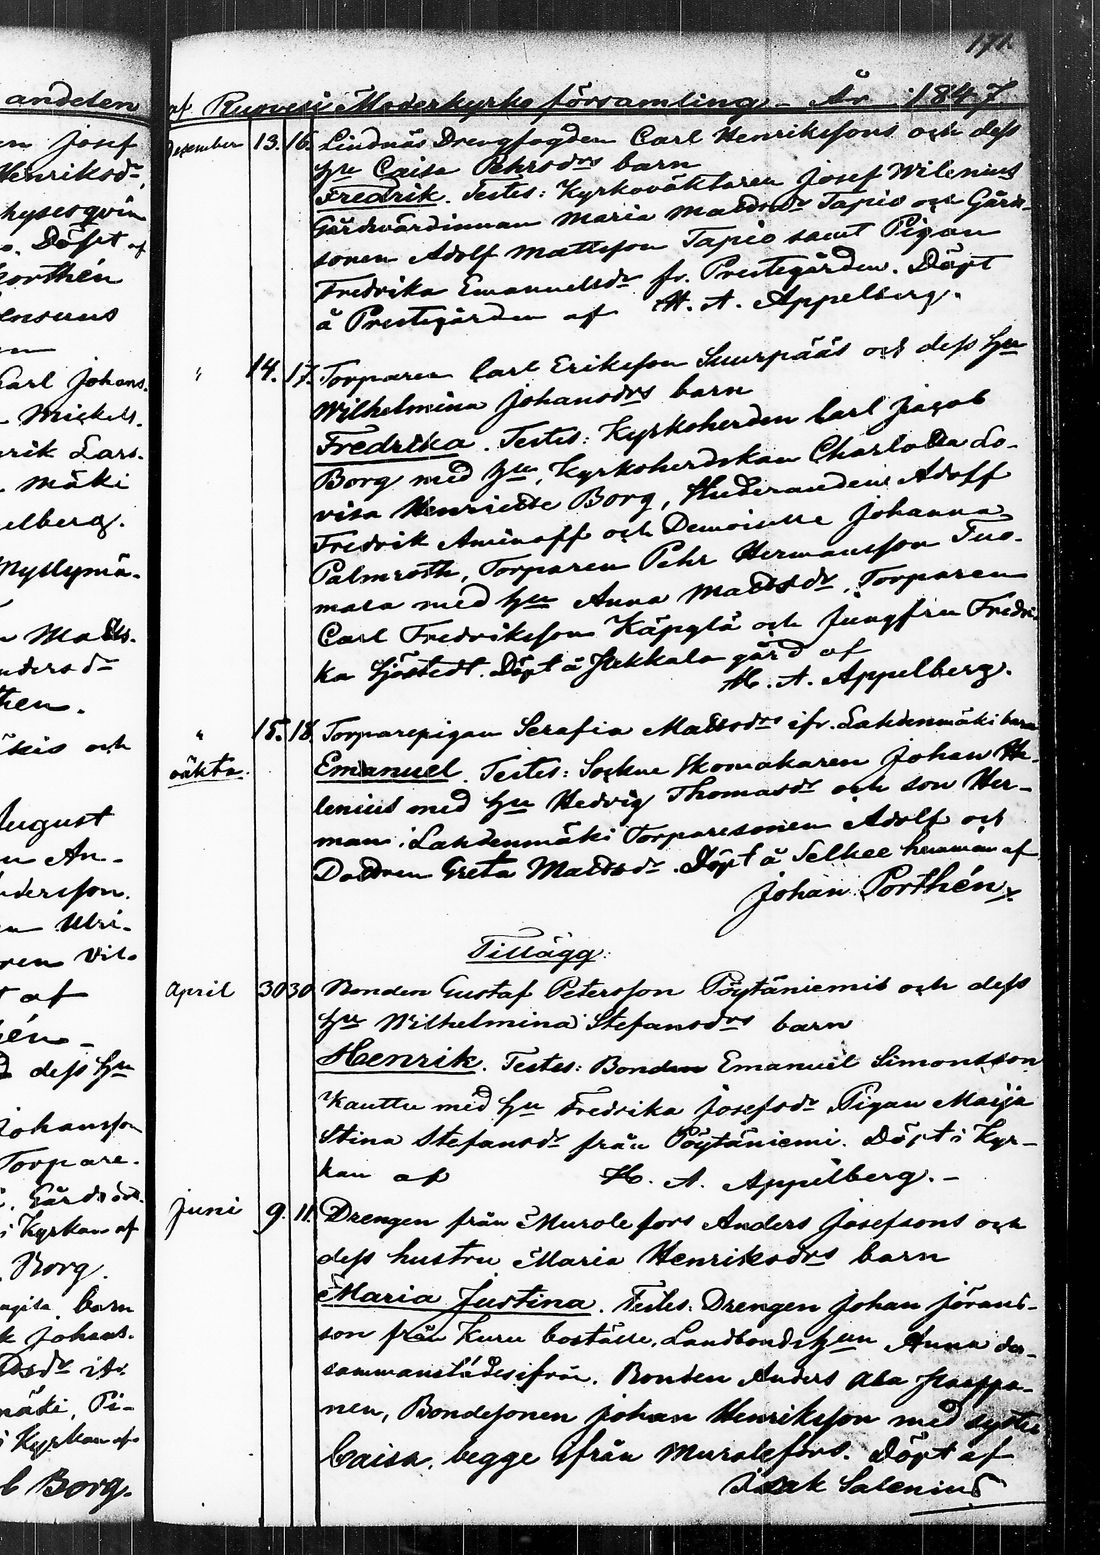 171.
andelen
af Ruovesi Moderkyrko församling – År 1847
en Josef
Henriksdr,
hysesqvin
Döpt af
Porthén
Carl Johans.
Mickels.
rik Lars.
mäki
elberg.
Myllymä.
Matts.
Andersdr
then.
och
August
An.
Andersson.
Ulri.
ren Vil.
t af
hén –
dess Hu
Johansson
Torpare.
i Kyrkan af
Borg.
barn
k Johans.
mäki, Pi-
i Kyrkan af
b Borg.
December 13. 16. Lindnäs Drengfogden Carl Henrikssons och dess
Hu Caisa Pehrsdrs barn
Fredrik. Testes: Kyrkoväktaren Josef Wilenius
Gårdvärdinnan Maria Mattsdr Tapio och Gårds-
sonen Adolf Mattsson Tapio samt Pigan
Fredrika Emanuelsdr fr. Prestegården. Döpt
å Prestegården af H. A. Appelberg.
" 14. 17. Torparen Carl Eriksson Suurpääs och dess Hu
Wilhelmina Johansdrs barn
Fredrika. Testes: Kyrkoherden Carl Jacob
Borg med Hu, Kyrkoherdskan Charlotta Lo-
visa Henriette Borg, Studeranden Adolf
Fredrik Aminoff och Demoiselle Johanna
Palmroth, Torparen Pehr Hermansson Tuo-
mara med Hu Anna Mattsdr, Torparen
Carl Fredriksson Käpylä och Jungfru Fredri-
ka Sjöstedt. Döpt å Pekkala gård af
H. A. Appelberg.
" 15. 18. Torparepigan Serafia Mattsdrs ifr. Lahdenmäki barn
oäkta. Emanuel. Testes: Sockne Skomakaren Johan He-
lenius med Hu Hedvig Thomasdr och son Her-
man i Lahdenmäki Torparesonen Adolf och
Dottren Greta Mattsdr. Döpt å Selkee hemman af
Johan Porthén.
Tillägg:
April 30 30 Bonden Gustaf Petersson Pöytäniemis och dess
Hu Wilhelmina Stefansdrs barn
Henrik. Testes: Bonden Emanuel Simonsson
Kauttu med Hu Fredrika Josefsdr Pigan Maija
Stina Stefansdr från Pöytäniemi. Döpt i Kyr-
kan af H. A. Appelberg. –
Juni 9. 11. Drengen från Murole fors Anders Josefsons och
dess hustru Maria Henriksdrs barn
Maria Justina. Testes: Drengen Johan Jörans-
son från Kuru boställe, Landbonds Hun Anna der-
sammanstädesifrån. Bonden Anders Ala
nen, Bondesonen Johan Henriksson med syster
Caisa, begge från Murolefors. Döpt af
Isaak Salenius